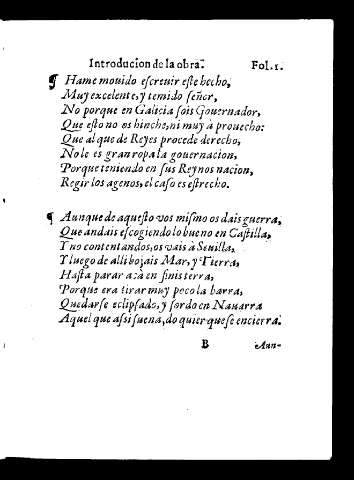 Introducion de la obra. Fol.1.
¶ Hame mouido escreuir este hecho,
Muy excelente, y temido señor,
No porque en Galicia sois Gouernador,
Que esto no os hinche, ni muy à prouecho:
Que al que de Reyes procede derecho,
No le es gran ropa la gouernacion,
Porque teniendo en sus Reynos nacion,
Regir los agenos, el caso es estrecho.
¶ Aunque de aquesto vos mismo os dais guerra,
Que andais escogiendo lo bueno en Castilla,
Y no contentandos, os vais à Seuilla,
Y luego de alli bojais Mar, y Tierra,
Hasta parar acà en finis terra,
Porque era tirar muy poco la barra,
Quedarse eclipsado, y sordo en Nauarra
Aquel que assi suena, do quier que se encierra.
B Aun-